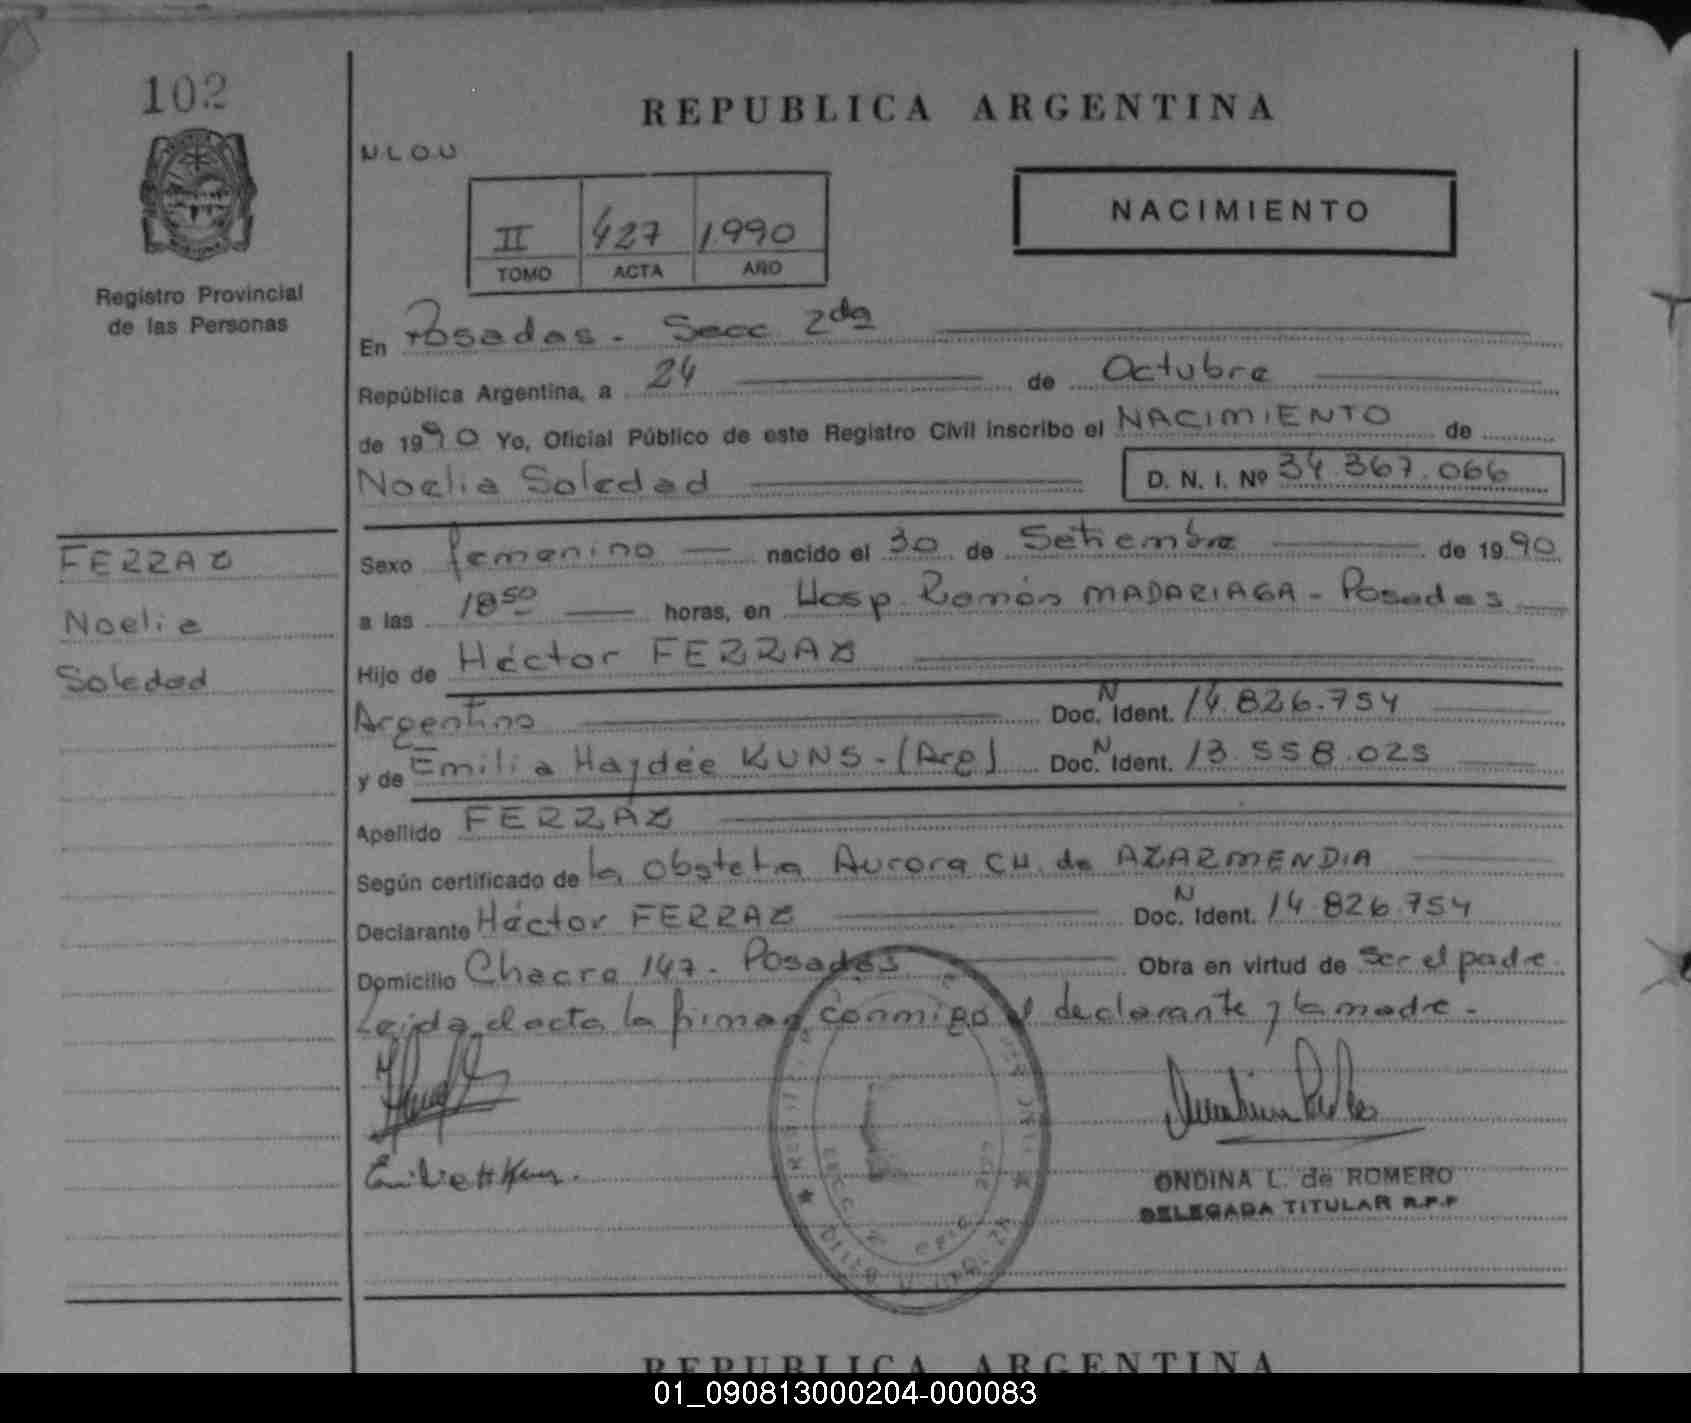 102
REPUBLICA ARGENTINA
N.L.O.U
NACIMIENTO
II 427 1.990
TOMO ACTA AÑO
Registro Provincial
de las Personas
En Posadas - Secc. 2da
República Argentina, a 24 de Octubre
de 1990 Yo, Oficial Público de este Registro Civil inscribo el NACIMIENTO de
Noelia Soledad D. N. I. Nº 34.367.066
FERRAZ
Noelia
Soledad
Sexo femenino nacido el 30 de Setiembre de 1990
a las 18 50 horas, en Hosp. Ramón MADARIAGA - Posadas
Hijo de Héctor FERRAZ
Argentino Doc. N Ident. 14.826.754
y de Emilia Haydée KUNS - (Arg) Doc. N Ident. 13.558.023
Apellido FERRAZ
Según certificado de la obstetra Aurora CH. de AZARMENDIA
Declarante Héctor FERRAZ Doc. N Ident. 14.826.754
Domicilio Chacra 147 - Posadas Obra en virtud de ser el padre.
Leida el acta la firman conmigo el declarante y la madre -
Emilia H Kuns.
ONDINA L. de ROMERO
DELEGADA TITULAR R.P.P
REPUBLICA ARGENTINA
01_090813000204-000083